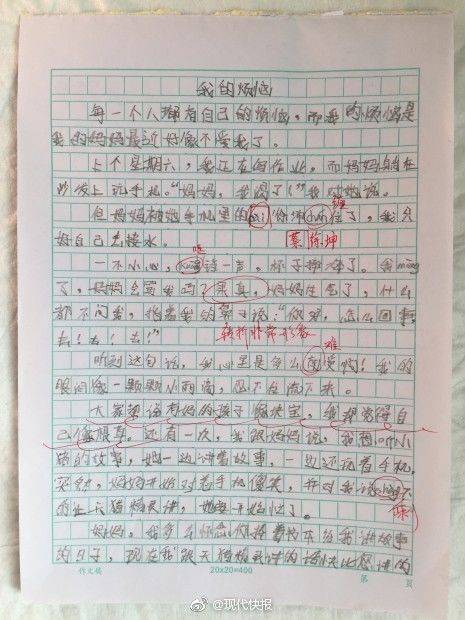 我的烦恼
每一个人都有自己的烦恼，而我的烦恼是
我的妈妈最近好像不爱我了。
上个星期六，我正在写作业，而妈妈躺在
沙发上玩手机。“妈妈，我渴了！”我对她说。
但妈妈被她手机里的 你 住了，我只 缠
好自己去接水。 蔡徐坤
一不小心， 一声，杯子摔碎了。我
了，妈妈会骂我吗？果真，妈妈生气了，什么
都不问我，指着我的鼻子说：“你呀，怎么回事，
去！去！去！” 转折非常形象
听到这句话，我心里是多么 受啊！我的 难
眼泪像一颗颗小雨滴，忍不住流下来。
大家都说有妈的孩子像块宝，我却觉得自
己像根草。还有一次，我跟妈妈说，我想听小
猪的故事，她一边讲着故事，一边还看着手机，
突然，妈妈开始对着手机傻笑，并对我说
天猫精灵讲，她
妈妈，我多么怀念 给我讲故事
的日子，现在我跟天猫精灵讲的话 比您讲的
作文稿 20×20=400 第 页
@现代快报